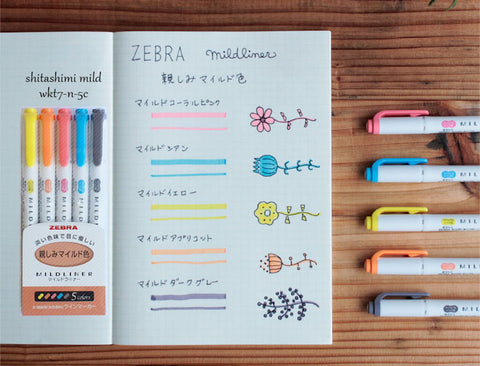 shitashimi mild
wkt7-n-5c
MILD
MILD
MILD
MILD
MILD
ZEBRA
濃い色味で目に優しい
親しみマイルド色
MILDLINER
マイルドライナー
5 colors
ラインマーカー
ZEBRA mildliner
親しみマイルド色
マイルドコーラルピンク
マイルドシアン
マイルドイエロー
マイルドアプリコット
マイルドダークグレー
MILDL
MILDL
MILDL
MILDL
MILDL